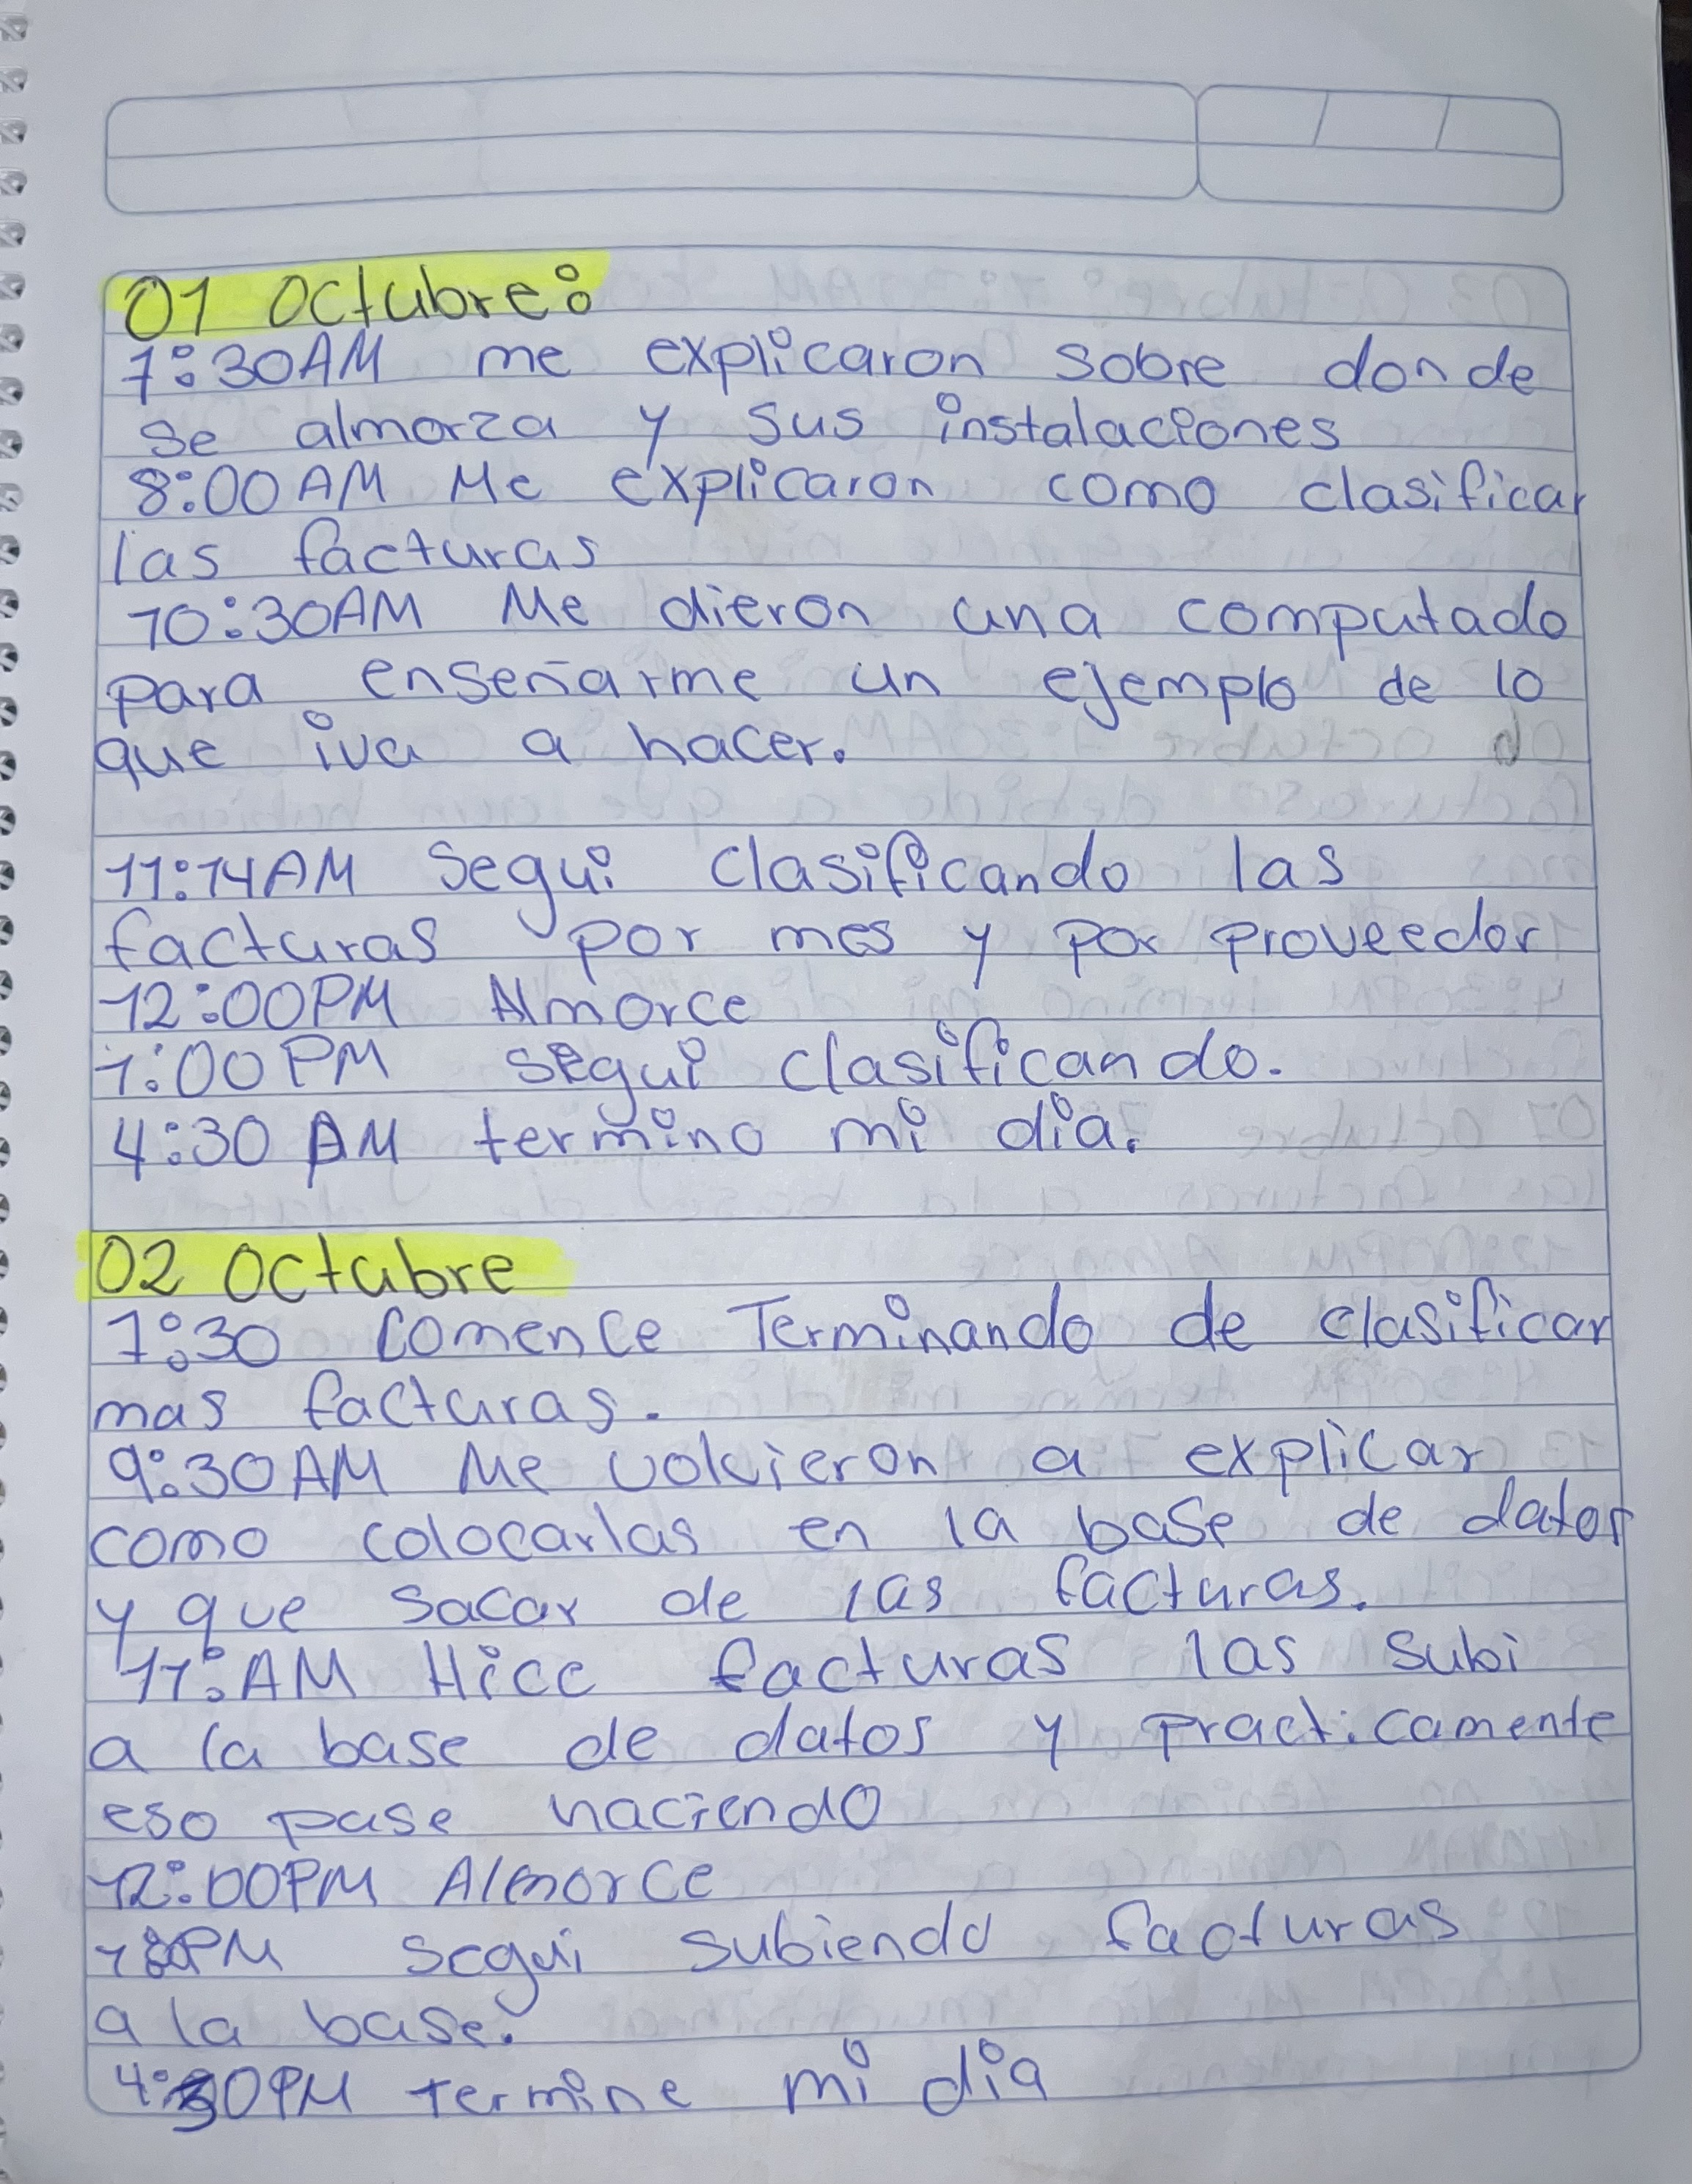 01 Octubre:
7:30AM me explicaron sobre donde
se almorza y sus instalaciones
8:00AM Me explicaron como clasificar
las facturas
10:30AM Me dieron una computado
para enseñarme un ejemplo de lo
que iva a hacer.
11:14AM Segui clasificando las
facturas por mes y por proveedor
12:00PM Almorce
1:00PM segui clasificando.
4:30 AM termino mi dia.
02 Octubre
7:30 Comence Terminando de clasificar
mas facturas.
9:30AM Me volvieron a explicar
como colocarlas en la base de datos
y que sacar de las facturas.
11:AM Hice facturas las subi
a la base de datos y practicamente
eso pase haciendo
12:00PM Almorce
PM segui subiendo facturas
a la base.
4:30PM termine mi dia